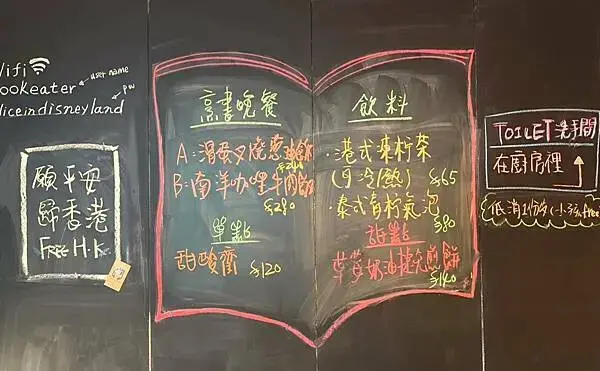 Wifi
ookeater user name
liceindisneyland pw
願平安
歸香港
FREE H.K.
晚餐
A:滑蛋叉燒蔥油飯
B:南洋咖哩牛肉飯
$280
單點
甜酸齋 $120
飲料
·港式凍檸茶
(可冷熱) $65
·泰式青檸氣泡
$80
甜點
草莓奶油捷克煎餅
$140
TOILET 洗手間
在廚房裡
低消1份 (小孩free)